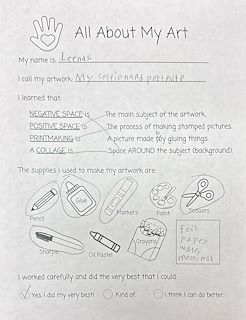 All About My Art
My name is Leena.
I call my artwork My self
I learned that:
NEGATIVE SPACE is The main subject of the artwork.
POSITIVE SPACE is The process of making stamped pictures.
PRINTMAKING is A picture made by gluing things.
A COLLAGE is Space AROUND the subject (background).
The supplies I used to make my artwork are:
Pencil Glue Markers Paint Scissors
Sharpie Oil Pastel Crayons
Foil
paper
water
I worked carefully and did the very best that I could.
Yes. I did my very best! Kind of. I think I can do better.